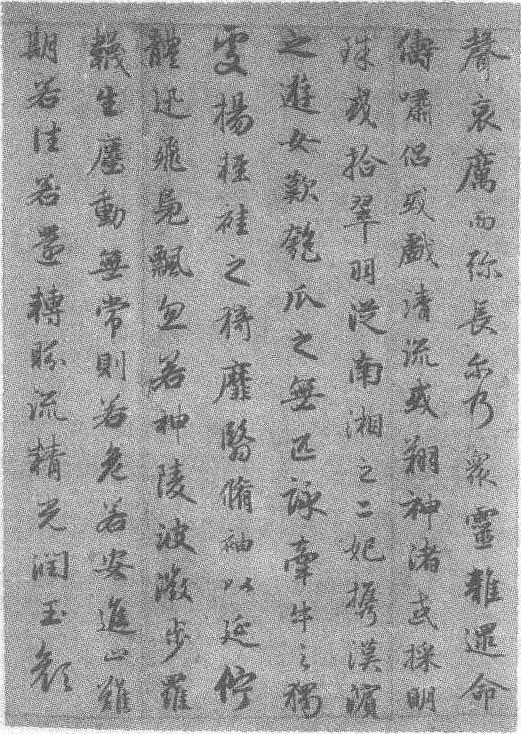 聲哀厲而弥長尔乃衆靈雜遝命
儔嘯侣或戲清流或翔神渚或採明
珠或拾翠羽從南湘之二妃攜漢濱
之遊女歎匏瓜之無匹詠牽牛之獨
處揚輕袿之猗靡翳脩袖以延佇
體迅飛鳧飄忽若神陵波微步羅
韈生塵動無常則若危若安進止難
期若往若還轉眄流精光潤玉顏